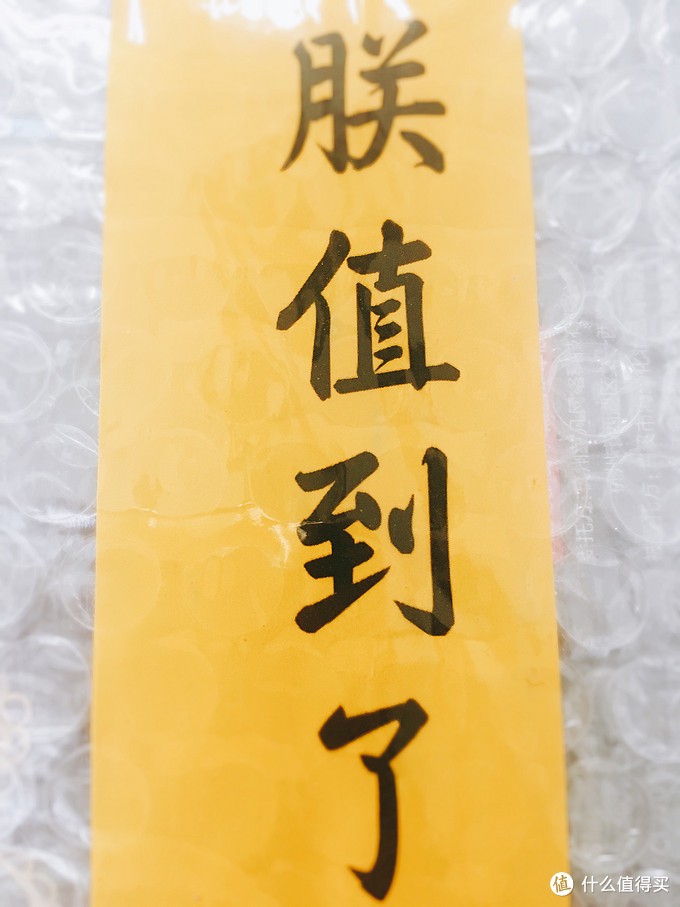 朕值到了
值 什么值得买